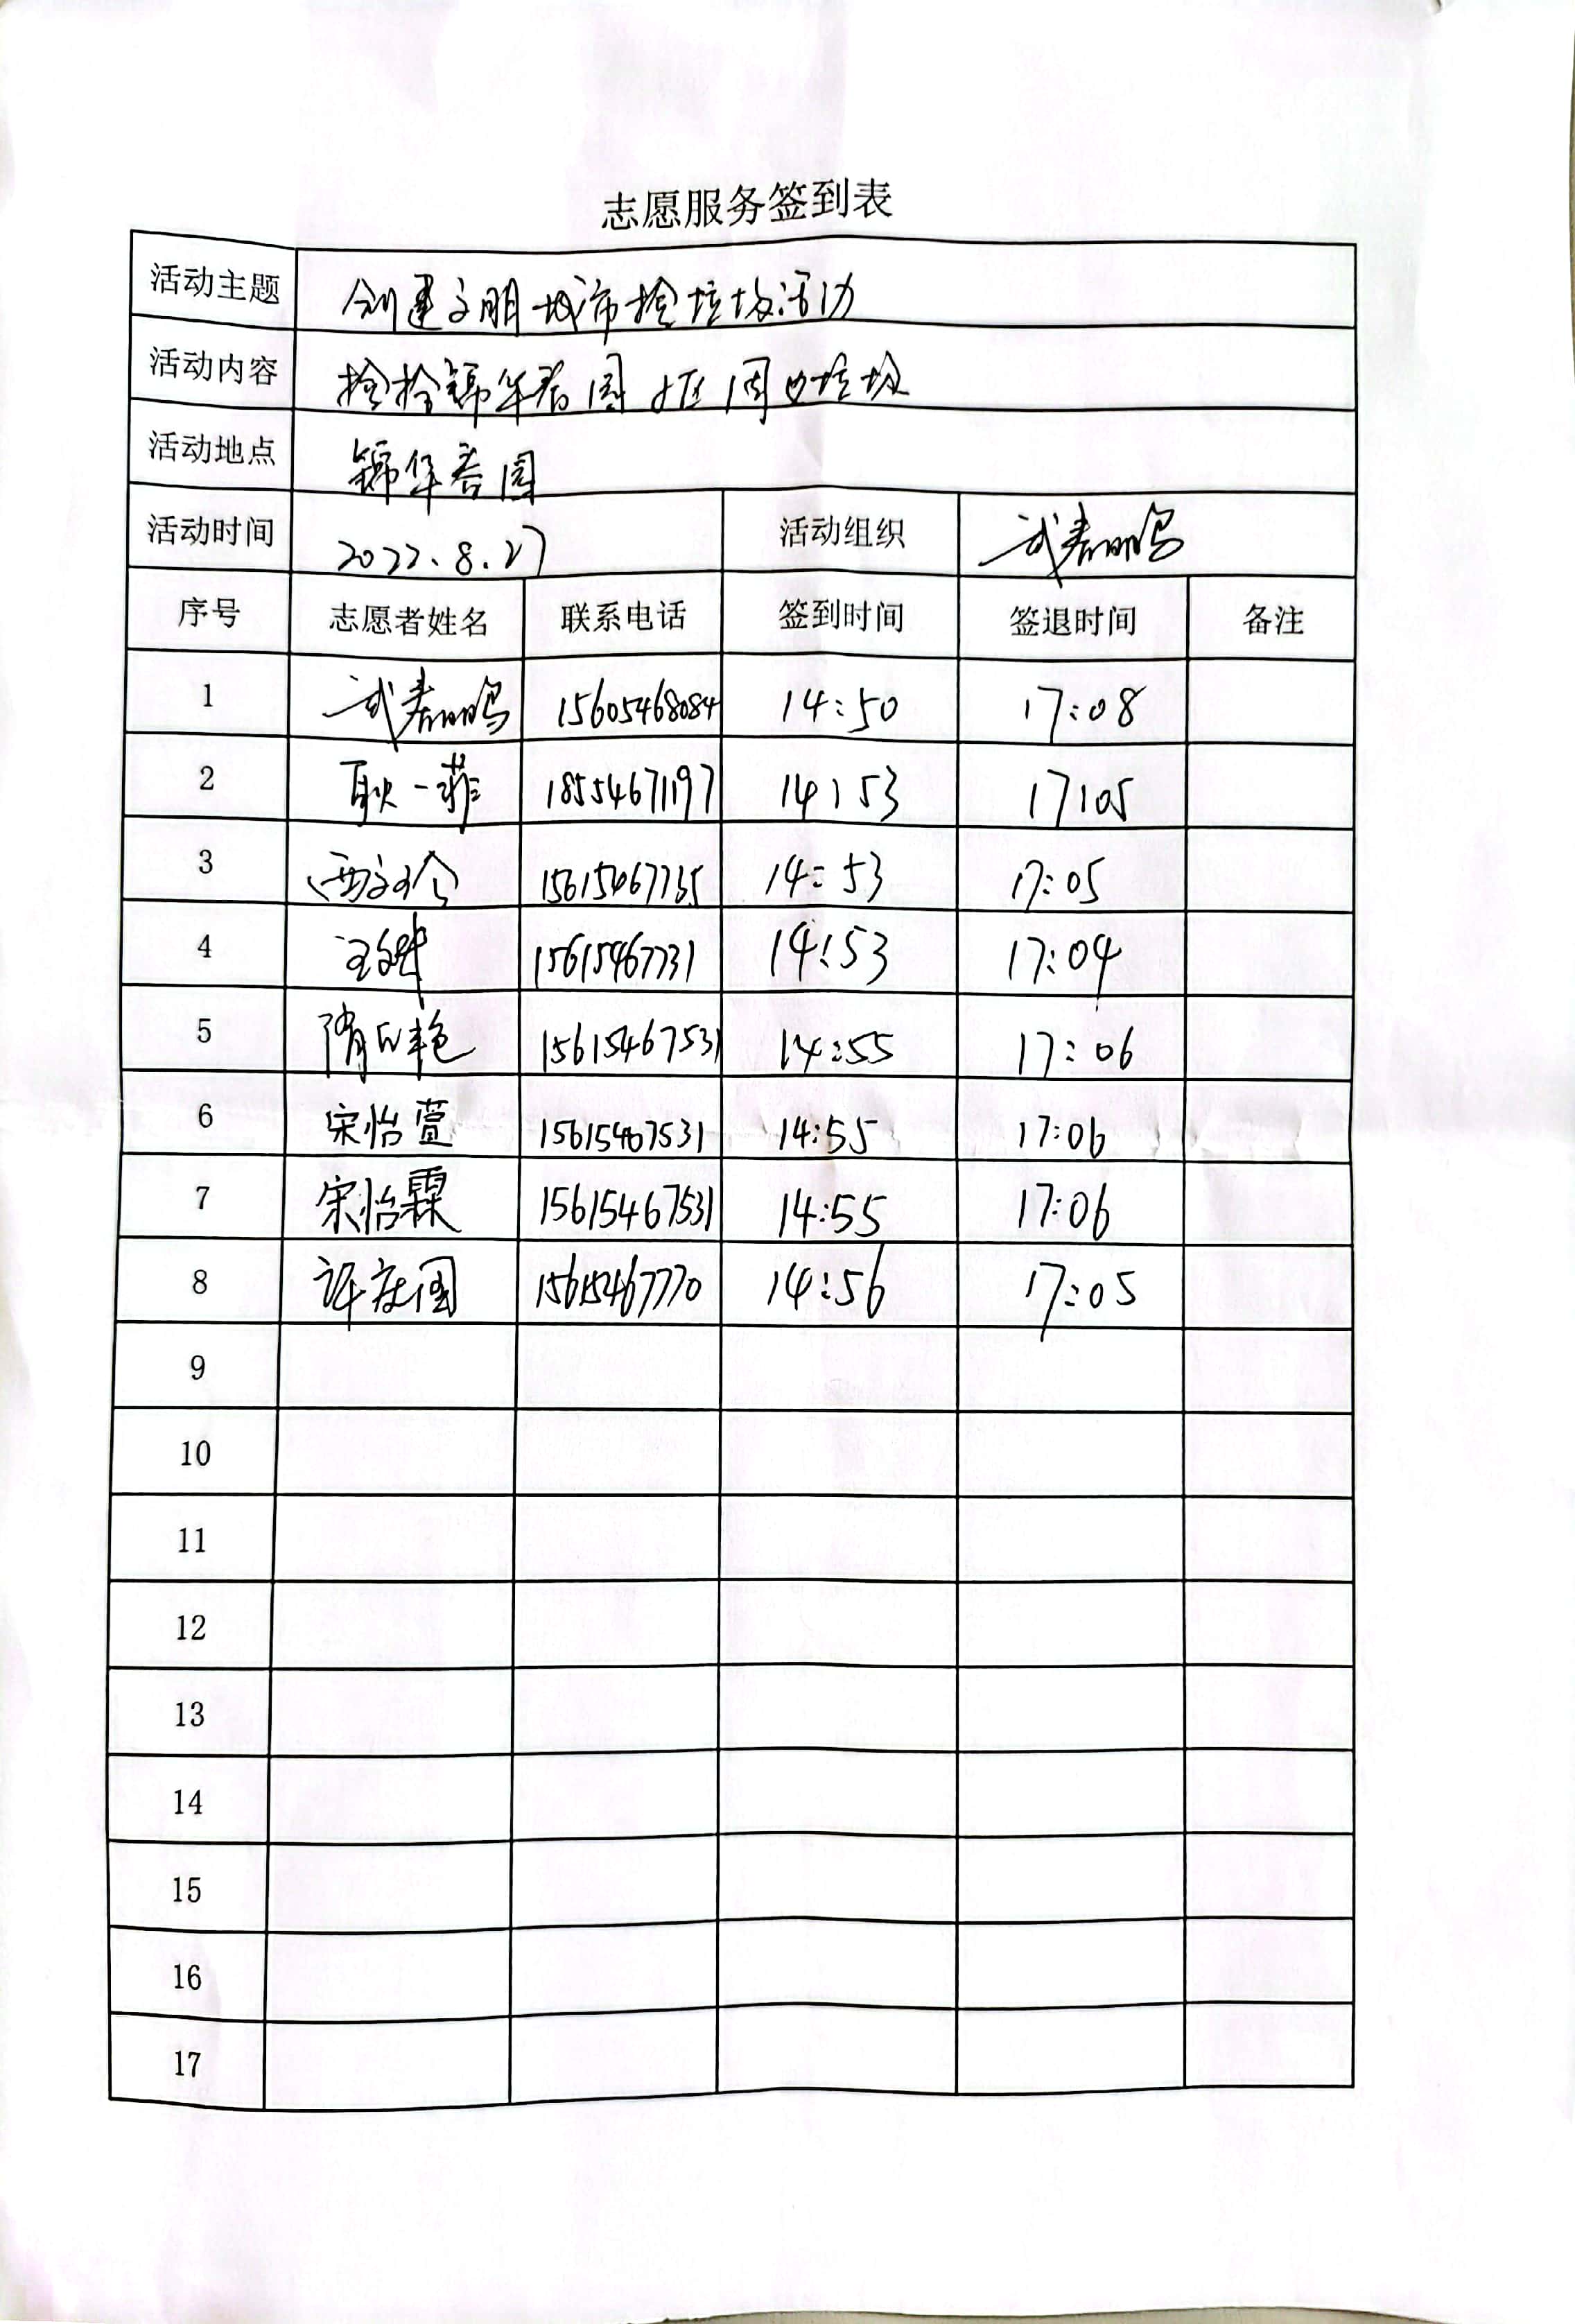 志愿服务签到表
活动主题 创建文明城市捡垃圾活动
活动内容 捡拾锦华春园小区周边垃圾
活动地点 锦华春园
活动时间 2022.8.27 活动组织
序号 志愿者姓名 联系电话 签到时间 签退时间 备注
1 15605468084 14:50 17:08
2 耿一菲 18554671197 14:53 17:05
3 15615467735 14:53 17:05
4 15615467731 14:53 17:04
5 15615467531 14:55 17:06
6 宋怡萱 15615467531 14:55 17:06
7 宋怡霖 15615467531 14:55 17:06
8 许庆国 15615467770 14:56 17:05
9
10
11
12
13
14
15
16
17